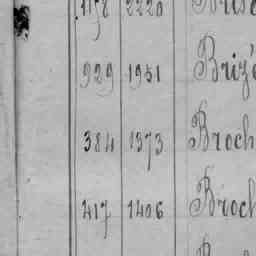 929 1951 Brizé
384 1373 Broch
417 1406 Broch